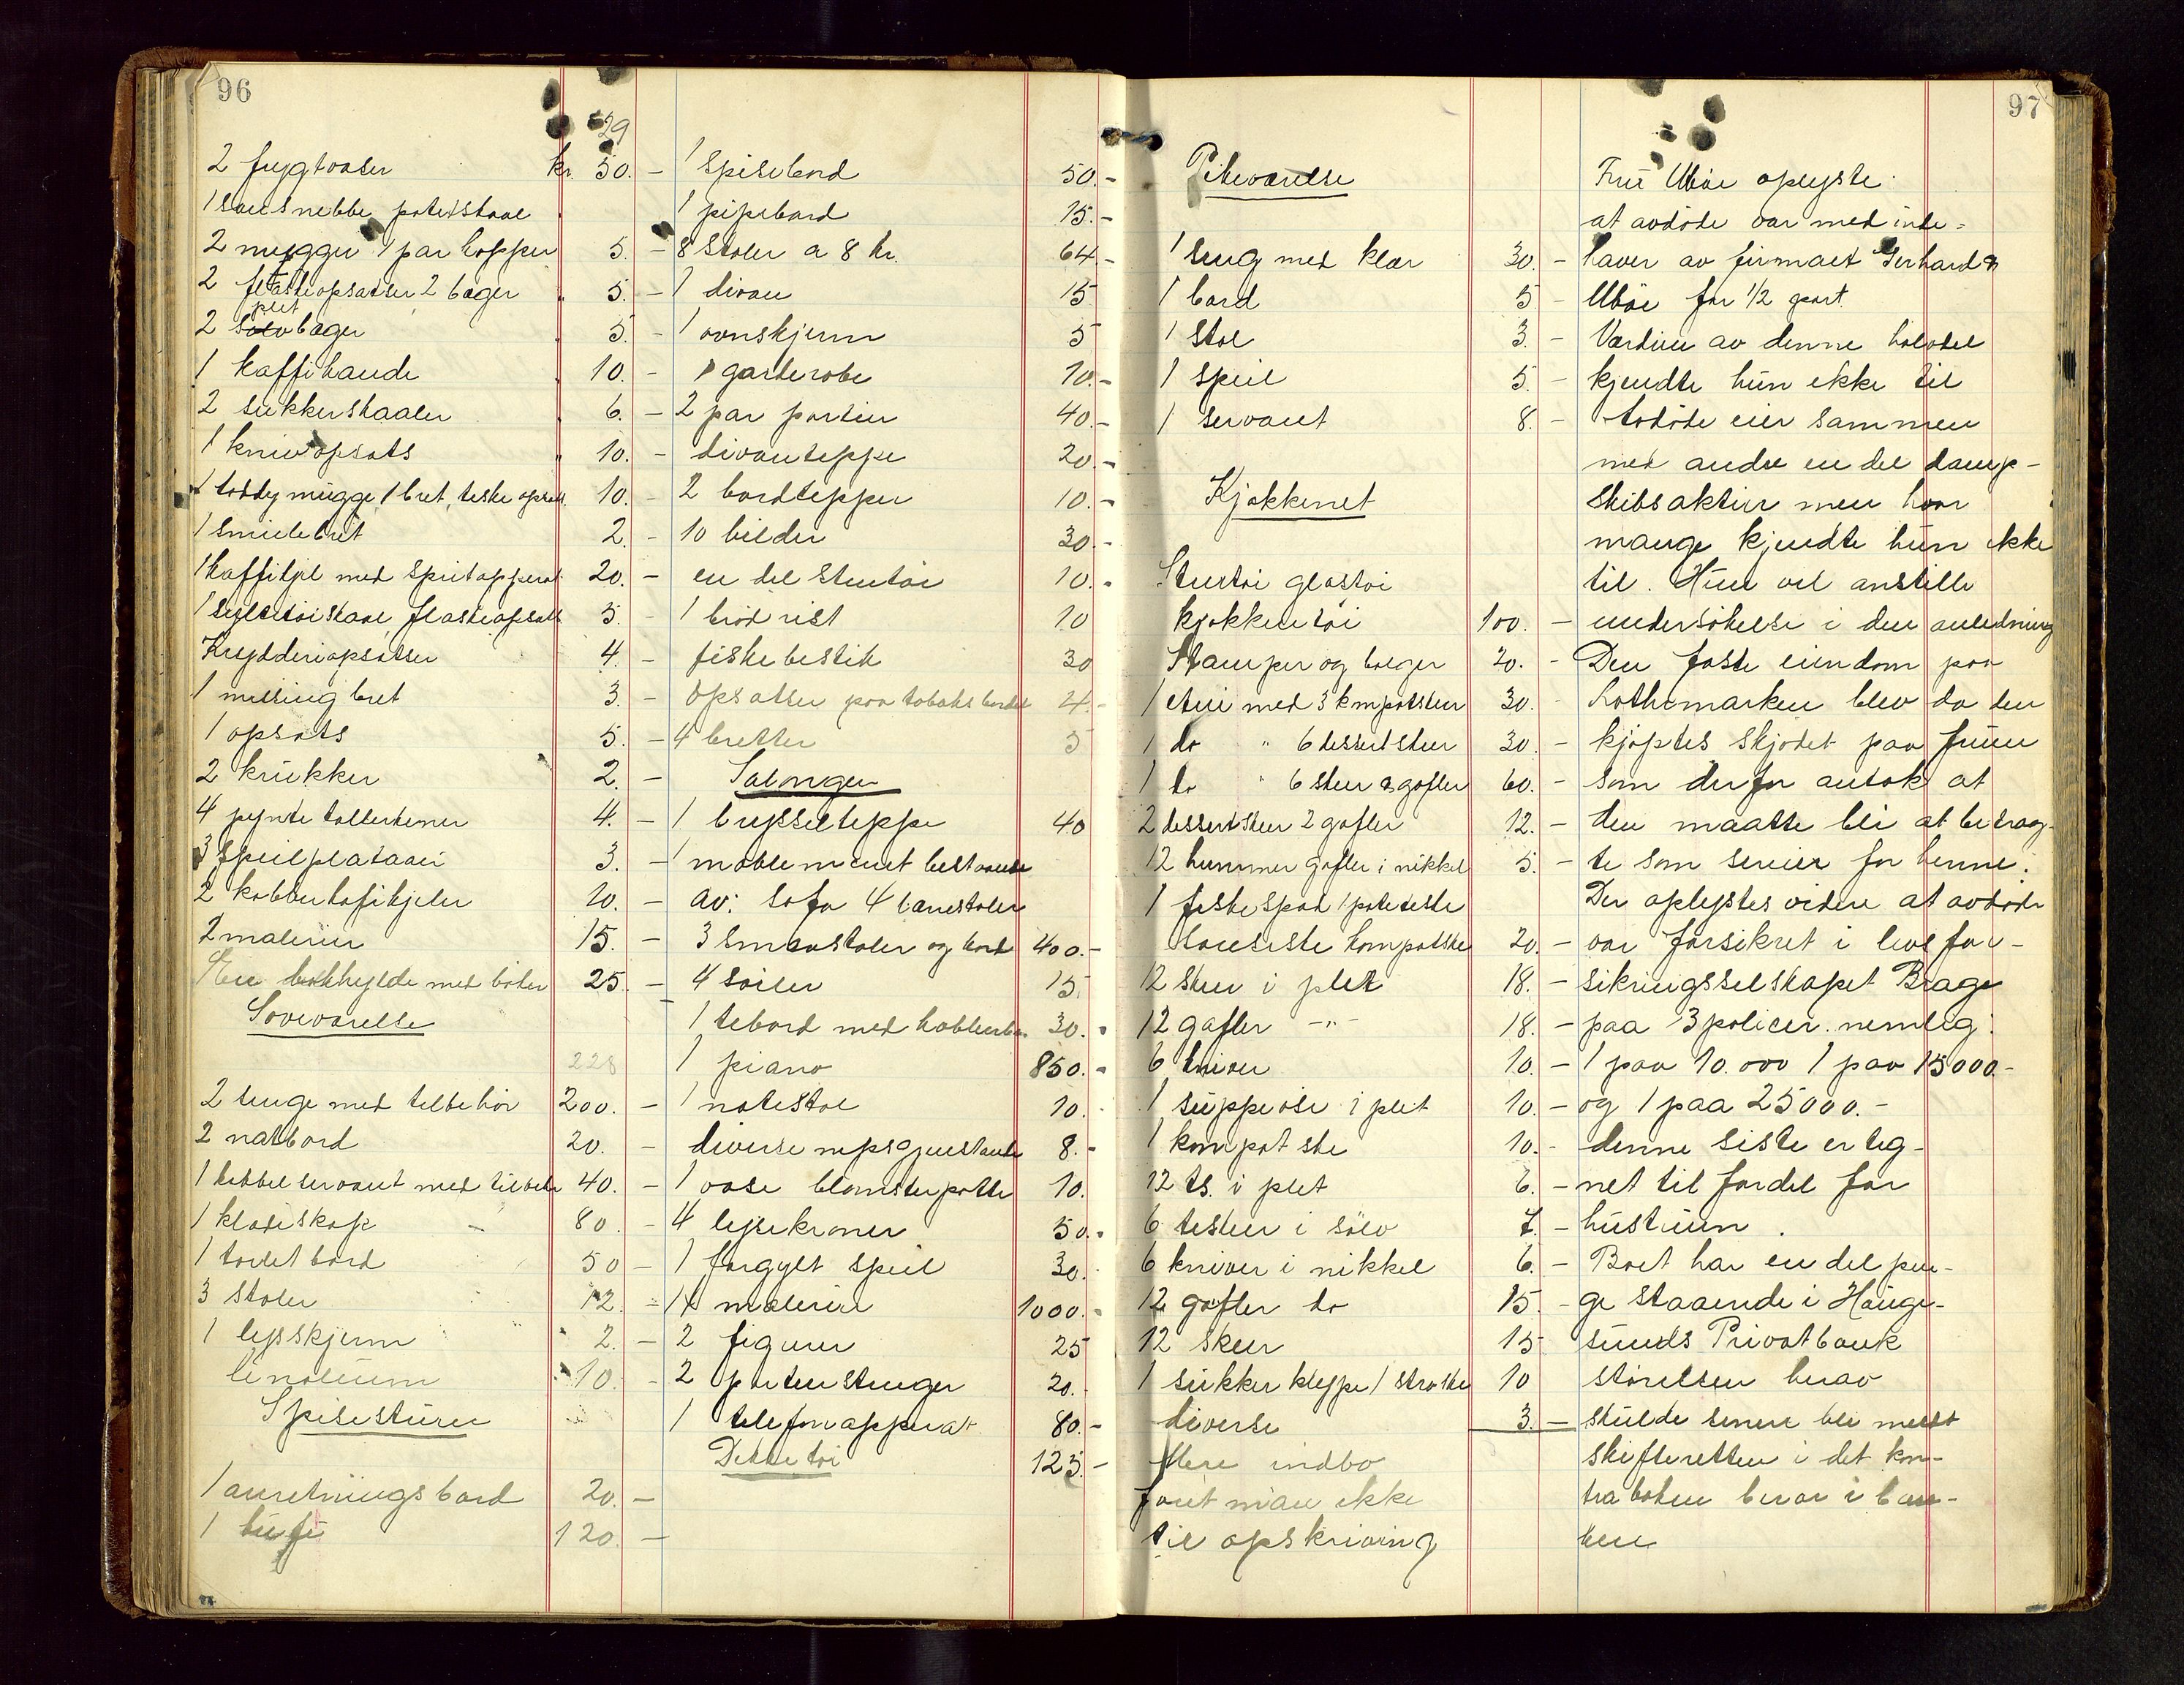 96
29
2 frugtvaser kr. 50.-
1 sausnebbe, potetskaal
2 mugger 1 par kopper 5.-
2 flaskeopsatser 2 bæger 5.-
plet
2 sølvbæger 5.-
1 kaffikande 10.-
2 sukkerskaaler 6.-
1 knivopsats 10.-
1 toddymugge, 1 bret, teske opsats 10.-
1 smulebret 2.-
1 kaffikjel med spritapperat 20.-
1 syltetøiskaal, flaskeopsats 5.-
Krydderiopsatser 4.-
1 messing bret 3.-
1 opsats 5.-
2 krukker 2.-
4 pynte tallerkener 4.-
3 speilplataaer 3.-
2 kobberkafikjeler 10.-
2 malerier 15.-
En bokhylde med bøker 25.-
Soveværelse
228
2 senge med tilbehør 200.-
2 natbord 20.-
1 dobbel servant med tilbehør 40.-
1 klædeskap 80.-
1 toiletbord 50-
3 stoler 12.-
1 lysskjerm 2.-
linoleum 10.-
Spisestuen
1 anretningsbord 20.-
1 bufe 120.-
1 spisebord 50.-
1 pipebord 15.-
8 stoler a 8 kr. 64.-
1 divan 15
1 ovnskjerm 5
1 garderobe 10.-
2 par portier 40.-
divanteppe 20.-
2 bordtepper 10.-
10 bilder 30.-
en del stentøi 10.-
1 brødrist 10
fiskebestik 30
Opsatser paa tobaksbordet 4.-
4 bretter 5
Salongen
1 brysselteppe 40
1 møblement bestaaende
av: sofa 4 lænestoler
3 smaastoler og bord 400.-
4 søiler 15.
1 tebord med kobberbr. 30.-
1 piano 850.-
1 notestol 10.
diverse nipsgjenstande 8.-
1 vase blomsterpotte 10.
4 lysekroner 50.-
1 forgylt speil 30.
14 malerier 1000.-
2 figurer 25
2 portierstenger 20.-
1 telefonapperat 80.-
Dekketøi 125.-
97
Pikeværelse
1 seng med klær 30.-
1 bord 5-
1 stol 3.-
1 speil 5.-
1 servant 8.-
Kjøkkenet
Stentøi glastøi
kjøkkentøi 100.-
Stamper og balger 20.-
1 etui med 3 kompotskeer 30.-
1 do " 6 dessertskeer 30.-
1 do " 6 skeer & gafler 60.-
2 dessertskeer 2 gafler 12.-
12 hummer gafler i nikkel 5.-
1 fiskespad 1 poteteske
sauseske kompotske 20.-
12 skeer i plet 18.-
12 gafler -"- 18.-
6 kniver 10.-
1 suppeøse i plet 10.-
1 kompotske 10.-
12 ts. i plet 6.-
6 teskeer i sølv 7.-
6 kniver i nikkel 6.-
12 gafler do 15.-
12 skeer 15
1 sukkerklype 1 strøske 10
diverse 3.-
Mere indbo
foret man ikke
til opskrivning
Fru Ubøe oplyste:
at avdøde var medinde-
haver av firmaet Gerhard &
Ubøe for 1/2 part.
Værdien av denne halvdel
kjendte hun ikke til
Avdøde eier sammen
med andre en del damp-
skibsaktier men hvor
mange kjendte hun ikke
til. Hun vil anstille
undersøkelse i den anledning
Den faste eiendom paa
Rothemarken blev da den
kjøptes skjødet paa fruen
som derfor antok at
den maatte bli at betrag-
te som særeie for henne.
Der oplystes videre at avdøde
var forsikret i livsfor-
sikringsselskapet Brage
paa 3 policer. nemlig:
1 paa 10.000 1 paa 15000.-
og 1 paa 25000.-
denne siste er teg-
net til fordel for
hustruen.
Boet har en del pen-
ge staaende i Hauge-
sunds Privatbank
størelsen herav
skulde senere bli meldt
skifteretten i det kon-
traboken beror i ban-
ken